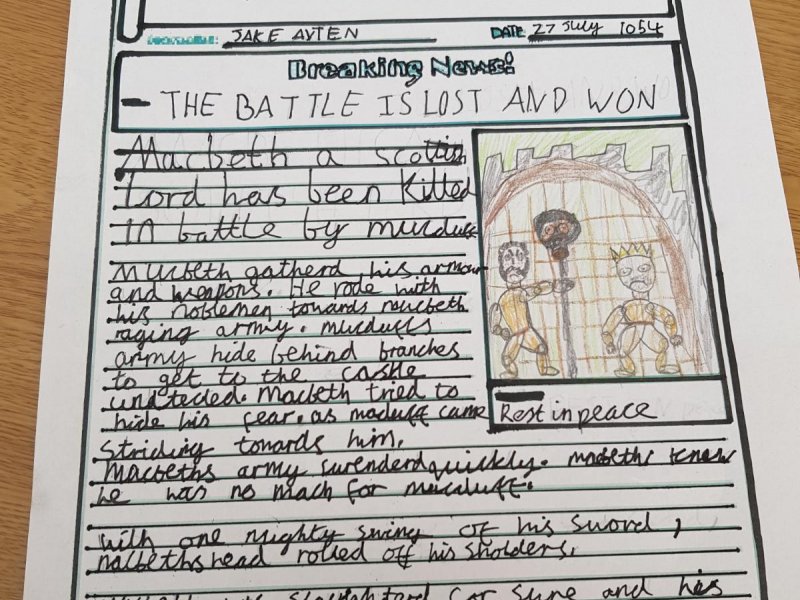 JAKE AYTEN DATE 27 July 1054
Breaking News!
THE BATTLE IS LOST AND WON
Macbeth a scottish
Lord has been killed
in battle by
Macbeth gatherd his armour
and weapons. He rode with
his noblemen towards
raging army.
army hide behind branches
to get to the castle
Macbeth tried to
hide his fear. as macduff came
Striding towards him.
Macbeths army surenderd quickly. know
he was no mach for
with one mighty swing of his sword,
head rolled off his sholders.
for sure and his
Rest in peace